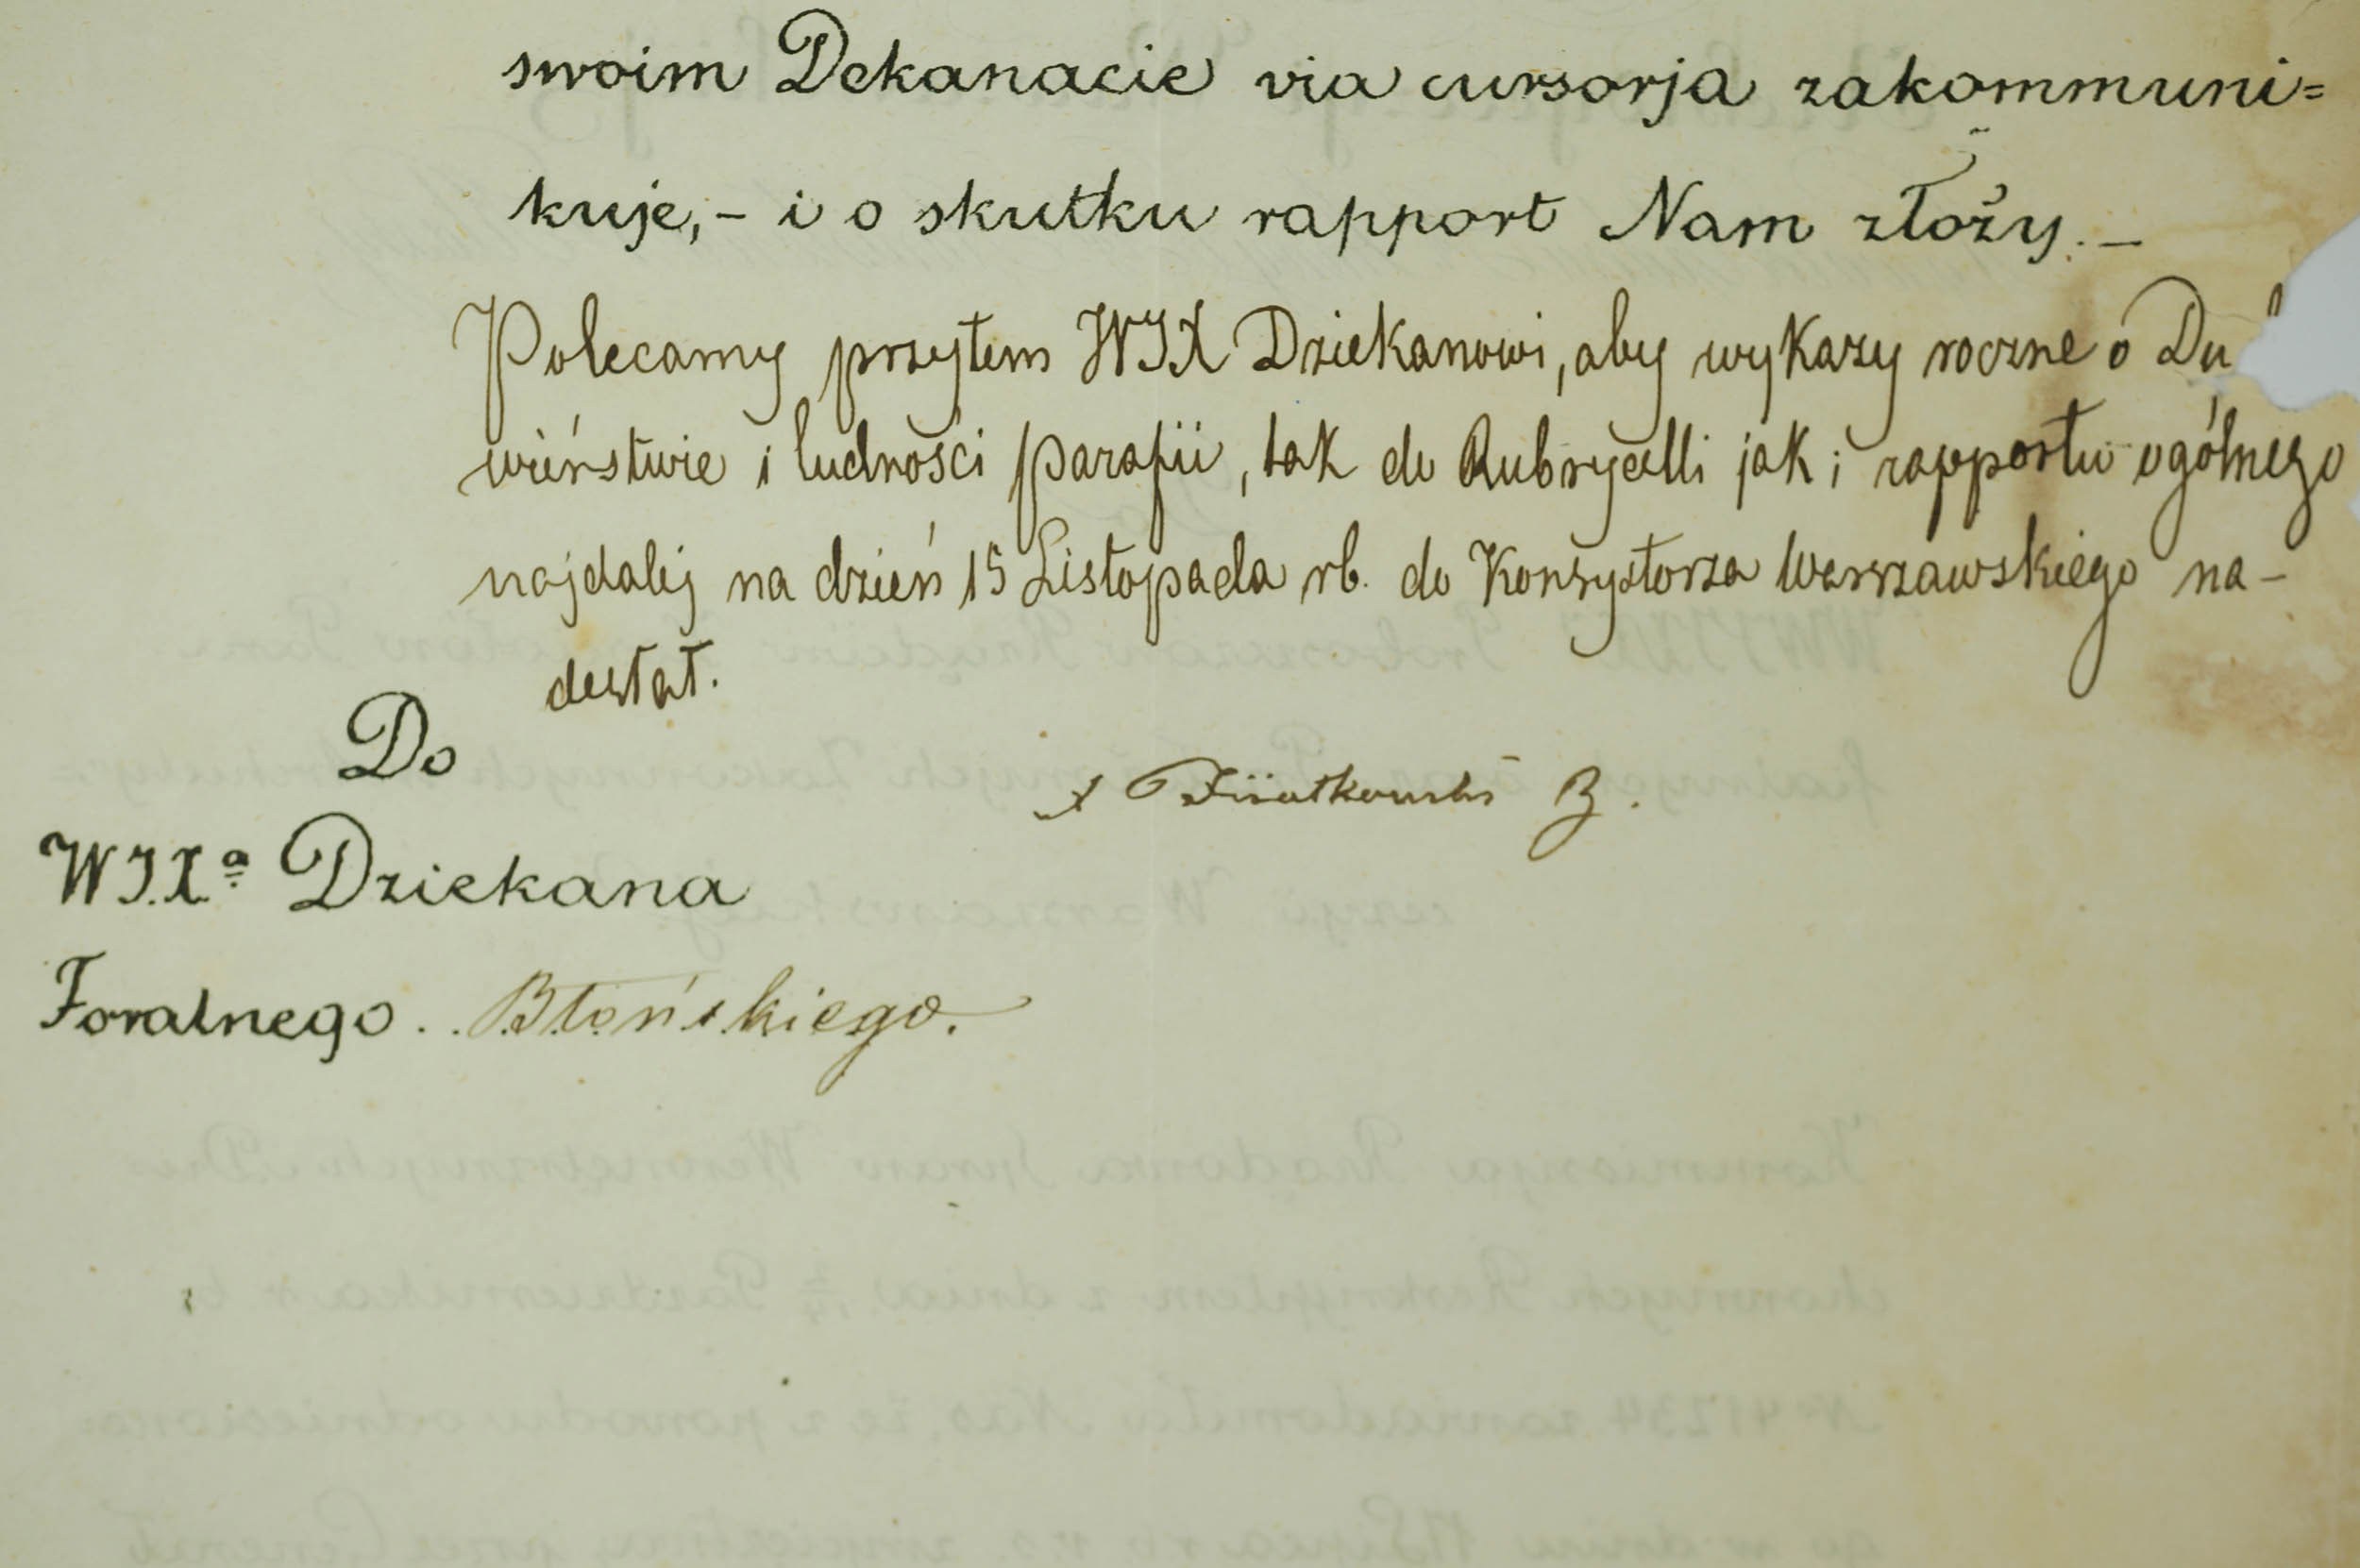 swoim Dekanacie via cursorja zakommuni=
kuje, – i o skutku rapport Nam złoży. –
Polecamy przytem WJX Dziekanowi, aby wykazy roczne o Du
wieństwie i ludności parafii, tak do Rubrycelli jak i rapportu ogólnego
najdalej na dzień 15 Listopada rb. do Konsystorza Warszawskiego na-
desłał.
Do
WJ.X.ª Dziekana
Foralnego . . Błońskiego.